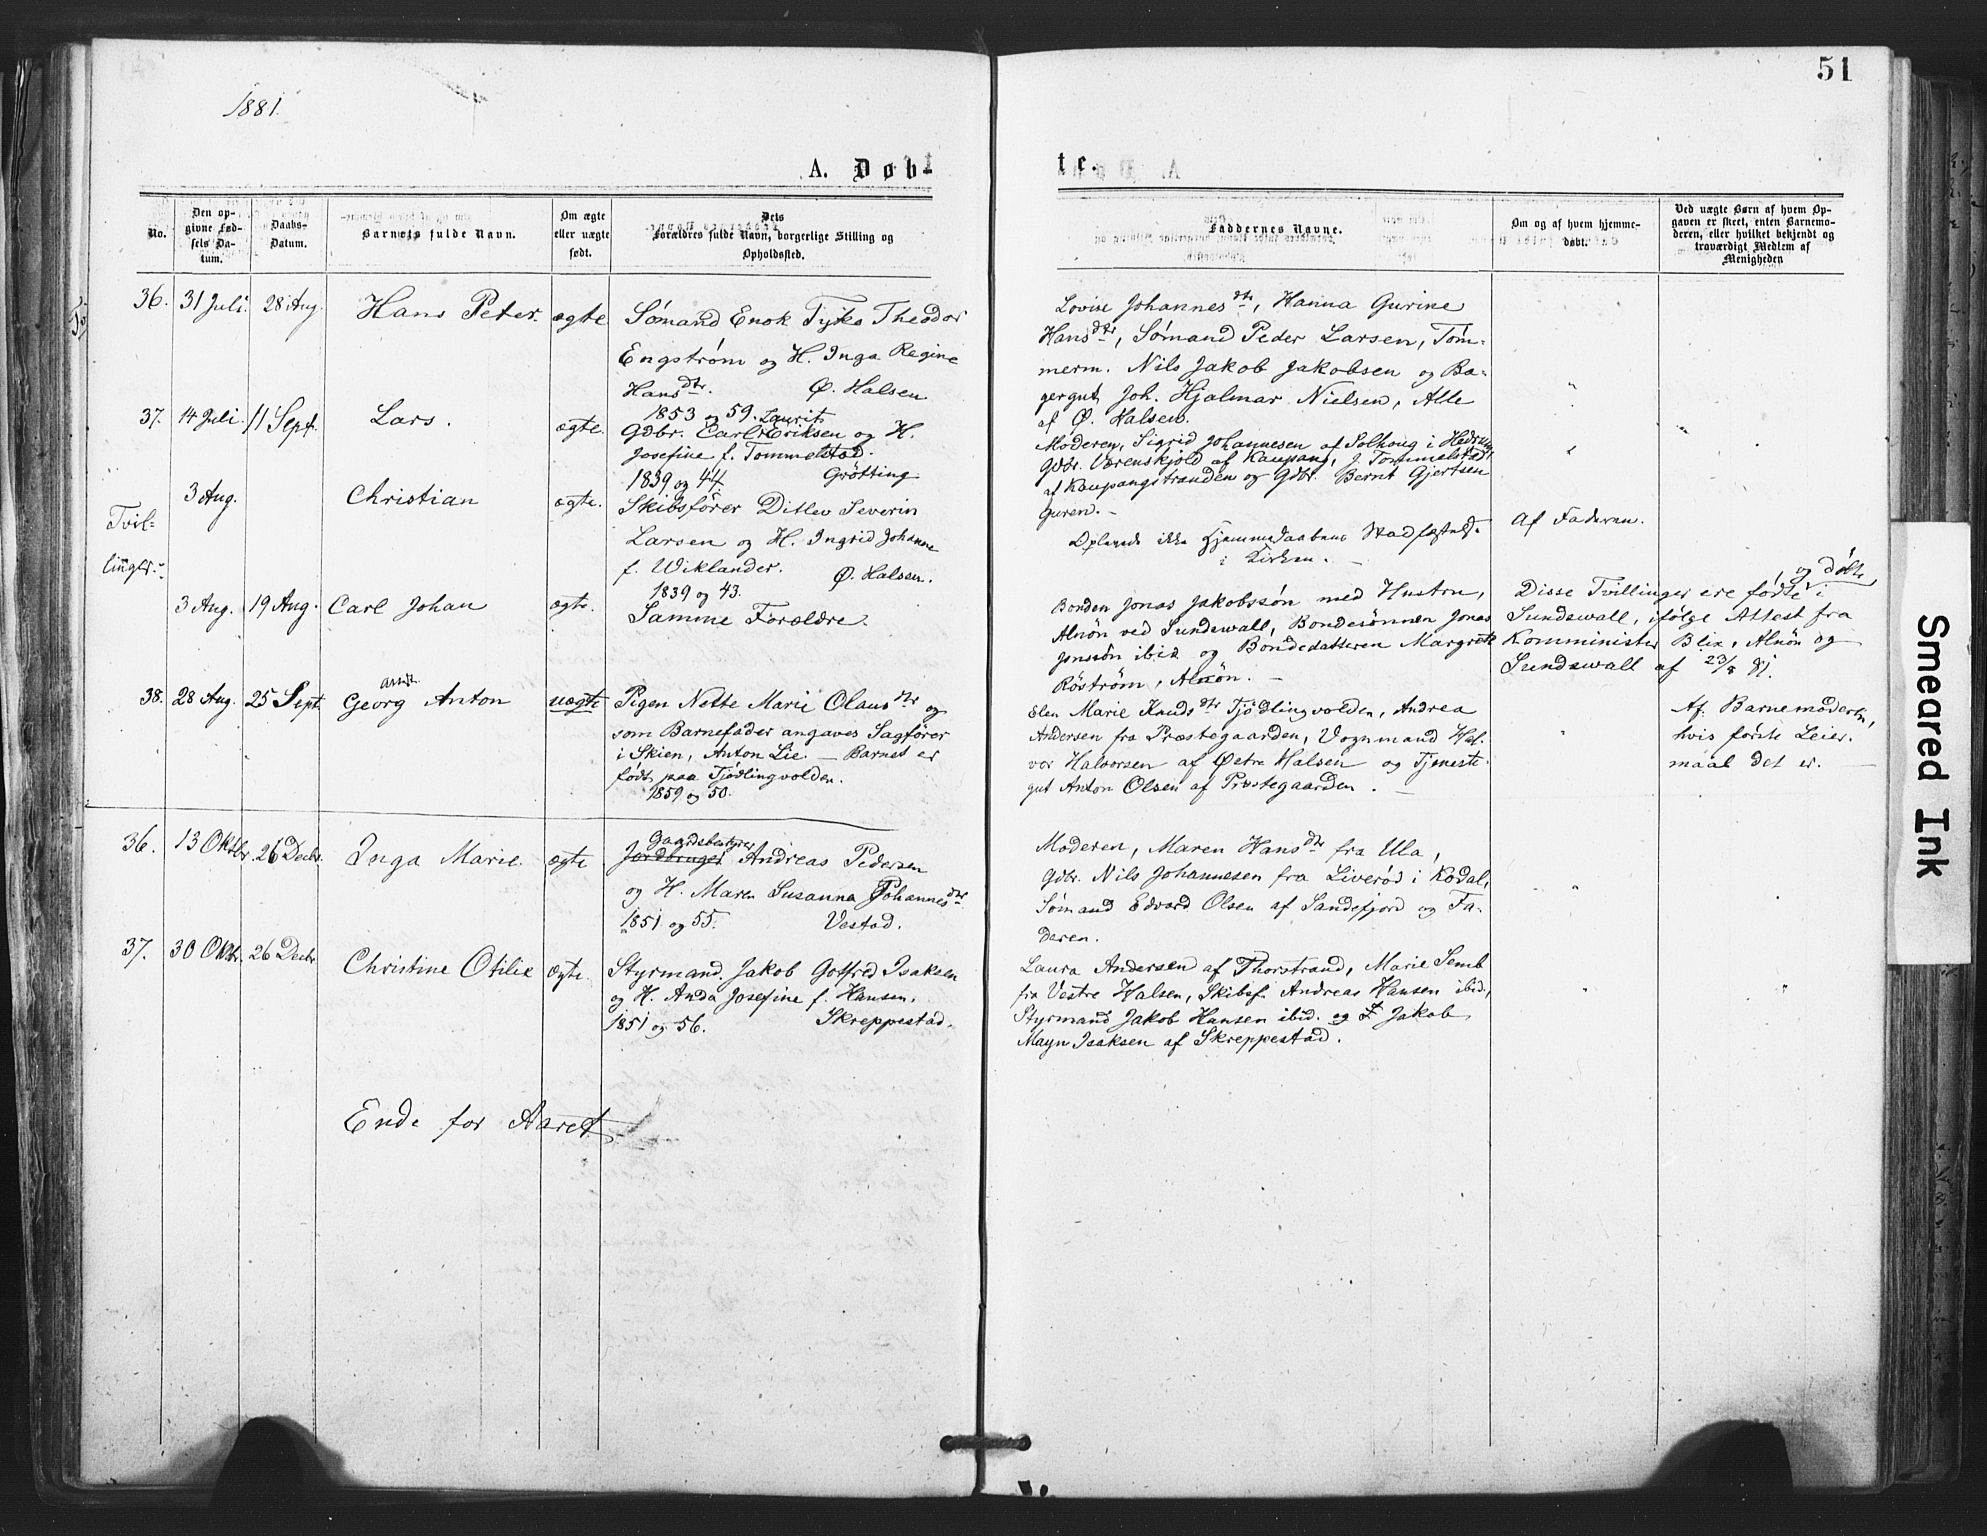 1881.
51
A. Døbte.
No.
Den opgivne Fødsels Datum.
Daabs-Datum.
Barnets fulde Navn.
Om ægte eller uægte født.
Dets Forældres fulde Navn, borgerlige Stilling og Opholdssted.
Faddernes Navne.
Om og af hvem hjemmedøbt.
Ved uægte Børn af hvem Opgaven er skeet, enten Barnemoderen, eller hvilket bekjendt og troværdigt Medlem af Menigheden
36. 31 Juli. 28 Aug. Hans Peter. ægte
Sømand Enok Tyko Theodor
Engström og H. Inga Regine
Hansdtr. Ø. Halsen
1853 og 59.
Lovise Johannesdtr, Hanna Gurine
Hansdtr, Sømand Peder Larsen, Tøm-
merm. Nils Jakob Jakobsen og Ba-
gergut Joh. Hjalmar Nielsen, Alle
af Ø. Halsen.
37. 14 Juli 11 Sept. Lars. ægte.
Laurits
Gdbr. Carl Eriksen og H.
Josefine f. Tommelstad.
1839 og 44. Grötting
Moderen, Sigrid Johannesen af Solhoug i Hedrum,
Gdbr. Værenskjold af Kaupang, J. Tommelstad
af Kaupangstranden og Gdbr. Bernt Gjertsen
Guren. -
Tvil-
linger.
3 Aug. Christian ægte.
Skibsfører Ditlev Severin
Larsen og H. Ingrid Johanne
f. Wiklander. Ø. Halsen.
1839 og 43.
Oplevede ikke Hjemmedaabens Stadfæstelse
i Kirken. -
Af Faderen.
3 Aug. 19 Aug. Carl Johan ægte.
Samme Forældre.
Bonden Jonas Jakobssön med Hustru,
Alnön ved Sundswall, Bondesönnen Jonas
Jonssön ibid og Bondedatteren Margrete
Röström, Alnön. -
, og døbte
Disse Tvillinger ere fødte i
Sundswall, ifølge Attest fra
Komminister Blix, Alnön og
Sundswall af 23/8 81.
38. 28 Aug. 25 Sept. Georg Anton uægte
Pigen Nette Marie Olausdtr og
som Barnefader angaves Sagfører
i Skien, Anton Lie. - Barnet er
født paa Tjödlingvolden.
1859 og 50.
Elen Marie Knudsdtr Tjödlingvolden, Andrea
Andersen fra Præstegaarden, Vognmand Hal-
vor Halvorsen af Østre Halsen og Tjeneste-
gut Anton Olsen af Præstegaarden. -
Af Barnemoderen,
hvis første Leier-
maal det er. -
36. 13 Oktbr. 26 Decbr. Inga Marie. ægte
Gaardsbestyrer
Jordbruger Andreas Pedersen
og H. Maren Susanna Johannesdtr
1851 og 55. Vestad.
Moderen, Maren Hansdtr fra Ula,
Gdbr. Nils Johannesen fra Liverød i Kodal,
Sømand Edvard Olsen af Sandefjord og Fa-
deren.
37. 30 Oktbr. 26 Decbr. Christine Otilie ægte.
Styrmand Jakob Gotfred Isaksen
og H. Anda Josefine f. Hansen.
1851 og 56. Skreppestad.
Laura Andersen af Thorstrand, Marie Semb
fra Vestre Halsen, Skibsf. Andreas Hansen ibid.,
Styrmand Jakob Hansen ibid. og Jakob
Mayn Isaksen af Skreppestad.
Ende for Aaret.
Smeared Ink